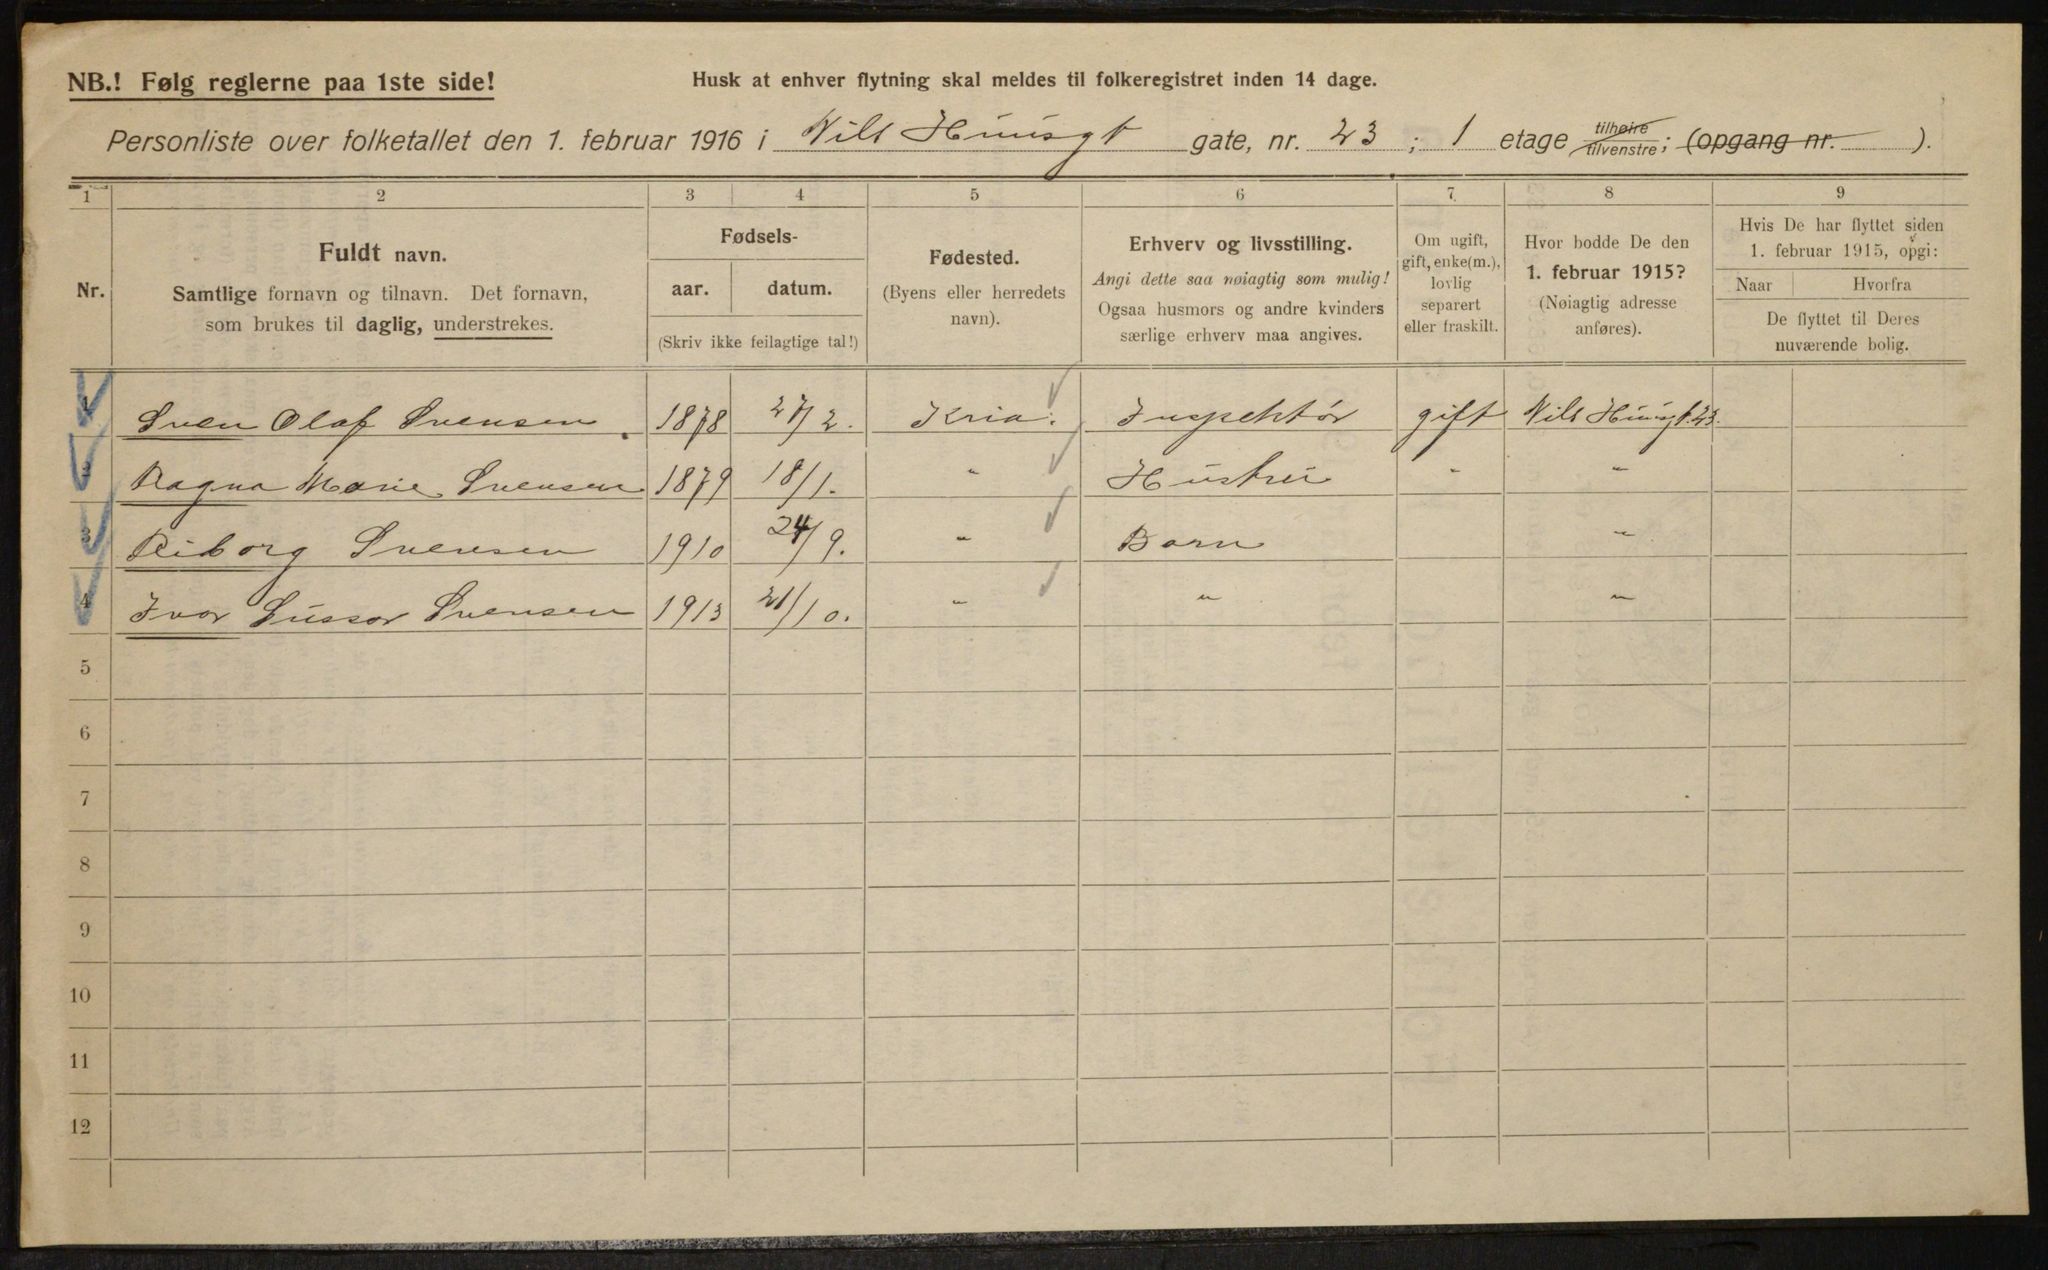 NB.! Følg reglerne paa 1ste side!
Husk at enhver flytning skal meldes til folkeregistret inden 14 dage.
Personliste over folketallet den 1. februar 1916 i Nils Huusgt gate, nr. 23 ; 1 etage tilhøire tilvenstre; (opgang nr. ).
1 2 3 4 5 6 7 8 9
Nr.
Fuldt navn.
Samtlige fornavn og tilnavn. Det fornavn,
som brukes til daglig, understrekes.
Fødsels-
aar. datum.
(Skriv ikke feilagtige tal!)
Fødested.
(Byens eller herredets
navn).
Erhverv og livsstilling.
Angi dette saa nøiagtig som mulig!
Ogsaa husmors og andre kvinders
særlige erhverv maa angives.
Om ugift,
gift, enke(m.),
lovlig
separert
eller fraskilt.
Hvor bodde De den
1. februar 1915?
(Nøiagtig adresse
anføres).
Hvis De har flyttet siden
1. februar 1915, opgi:
Naar Hvorfra
De flyttet til Deres
nuværende bolig.
1 Sven Olaf Svensen 1878 27/2. Kria. Inspektør gift Nils Huusgt. 23.
2 Ragna Marie Svensen 1879 18/1. " Hustru " "
3 Svensen 1910 24/9. " Barn "
4 Ivar Svensen 1913 21/10. " " "
5
6
7
8
9
10
11
12